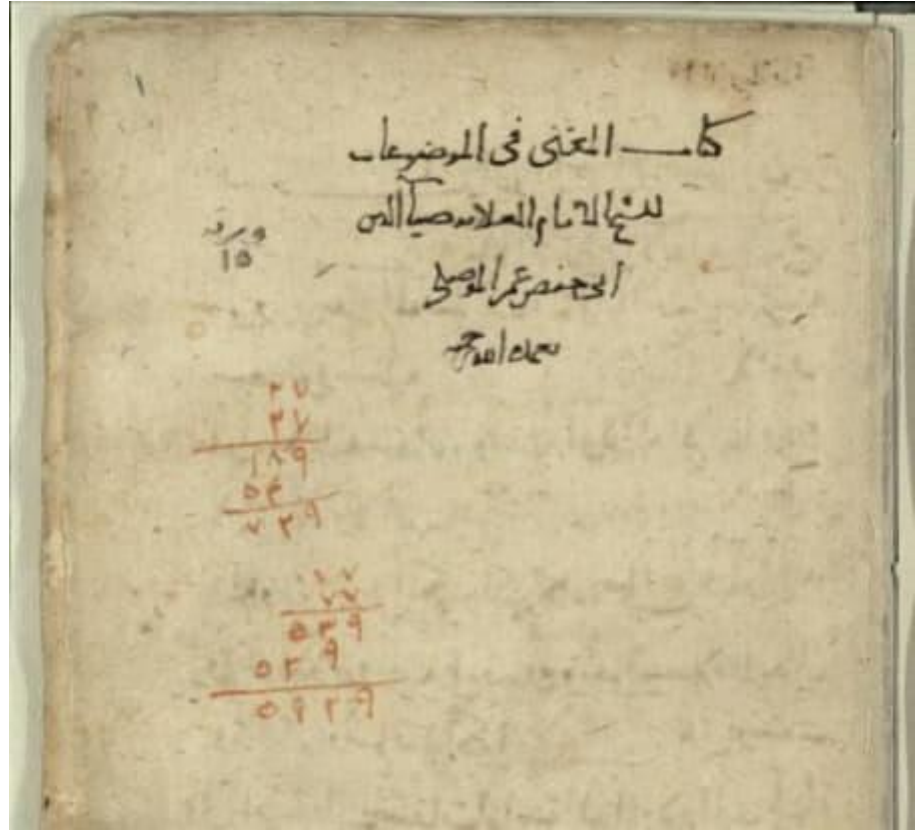 كتاب المغنى فى الموضوعات
للشيخ الامام العلامه ضيا الدين
ابى حفص عمر الموصلى
رحمه الله
ورقه
١٥
٢٧
٢٧
١٨٩
٥٤
٧٢٩
٧٧
٧٧
٥٣٩
٥٣٩
٥٩٢٩